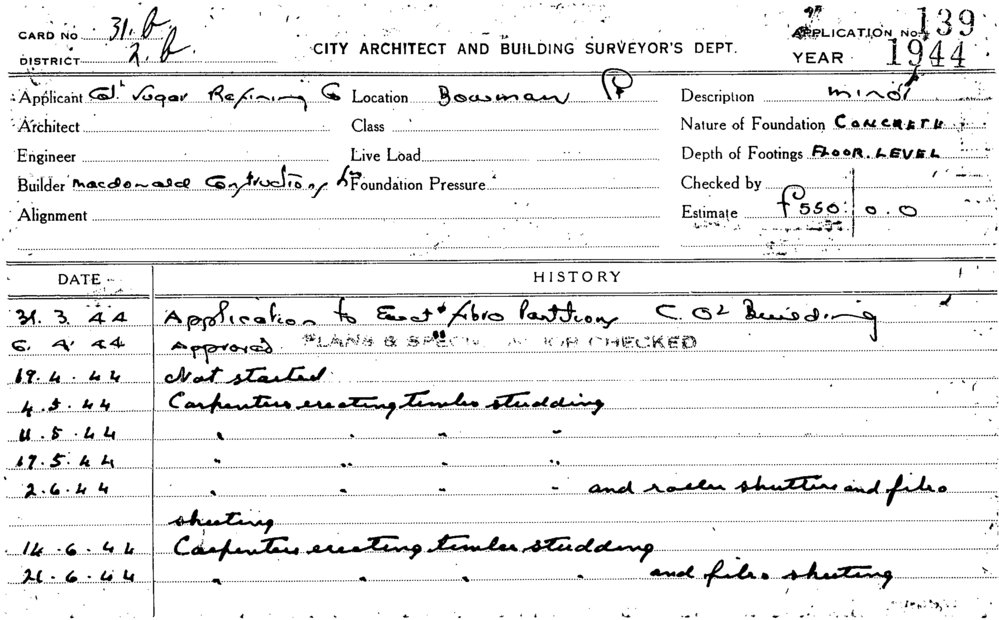 CARD NO 31. b
DISTRICT 2. b
CITY ARCHITECT AND BUILDING SURVEYOR'S DEPT.
APPLICATION No. 139
YEAR 1944
Applicant Col. Sugar Refining Co Location Bowman Description minor
Architect Class Nature of Foundation CONCRETE
Engineer Live Load Depth of Footings FLOOR. LEVEL
Builder macdonald Constructions Foundation Pressure Checked by
Alignment Estimate £550 : 0. 0
DATE HISTORY
31. 3. 44 Application to Erect fibro Partitions C. O2 Building
6. 4. 44 Approved PLANS & CHECKED
19. 4. 44 Not started
4. 5. 44 Carpenters erecting timber studding
11. 5. 44 " " " "
17. 5. 44 " " " "
2. 6. 44 " " " " and roller shutters and fibro
sheeting
14. 6. 44 Carpenters erecting timber studding
21. 6. 44 " " " " and fibro sheeting